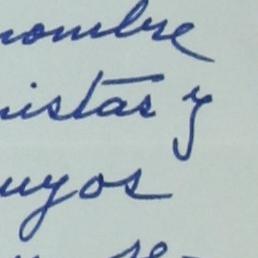 nombre
nistas y
uyos
se